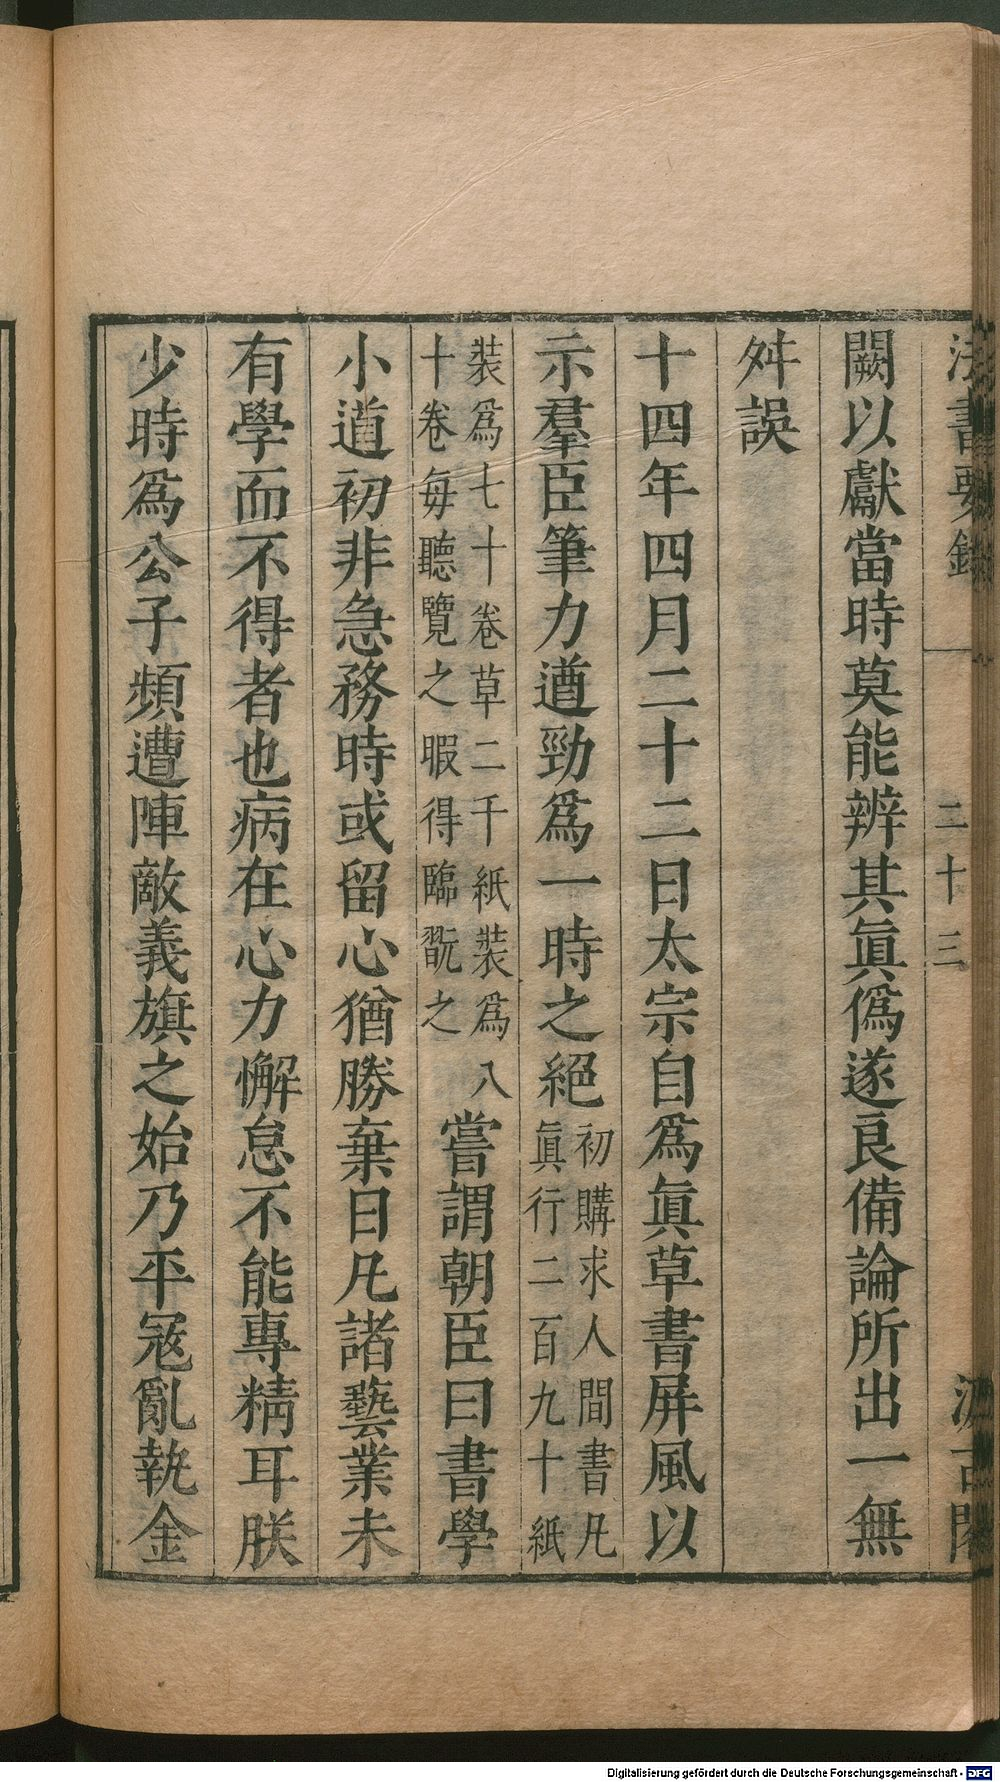 法書要錄 二十三 汲古閣
闕以獻當時莫能辨其眞僞遂良備論所出一無
舛誤
十四年四月二十二日太宗自爲眞草書屏風以
示羣臣筆力遒勁爲一時之絕初購求人間書凡
眞行二百九十紙
裝爲七十卷草二千紙裝爲八
十卷每聽覽之暇得臨翫之
嘗謂朝臣曰書學
小道初非急務時或留心猶勝棄日凡諸藝業未
有學而不得者也病在心力懈怠不能專精耳朕
少時爲公子頻遭陣敵義旗之始乃平寇亂執金
Digitalisierung gefördert durch die Deutsche Forschungsgemeinschaft - DFG